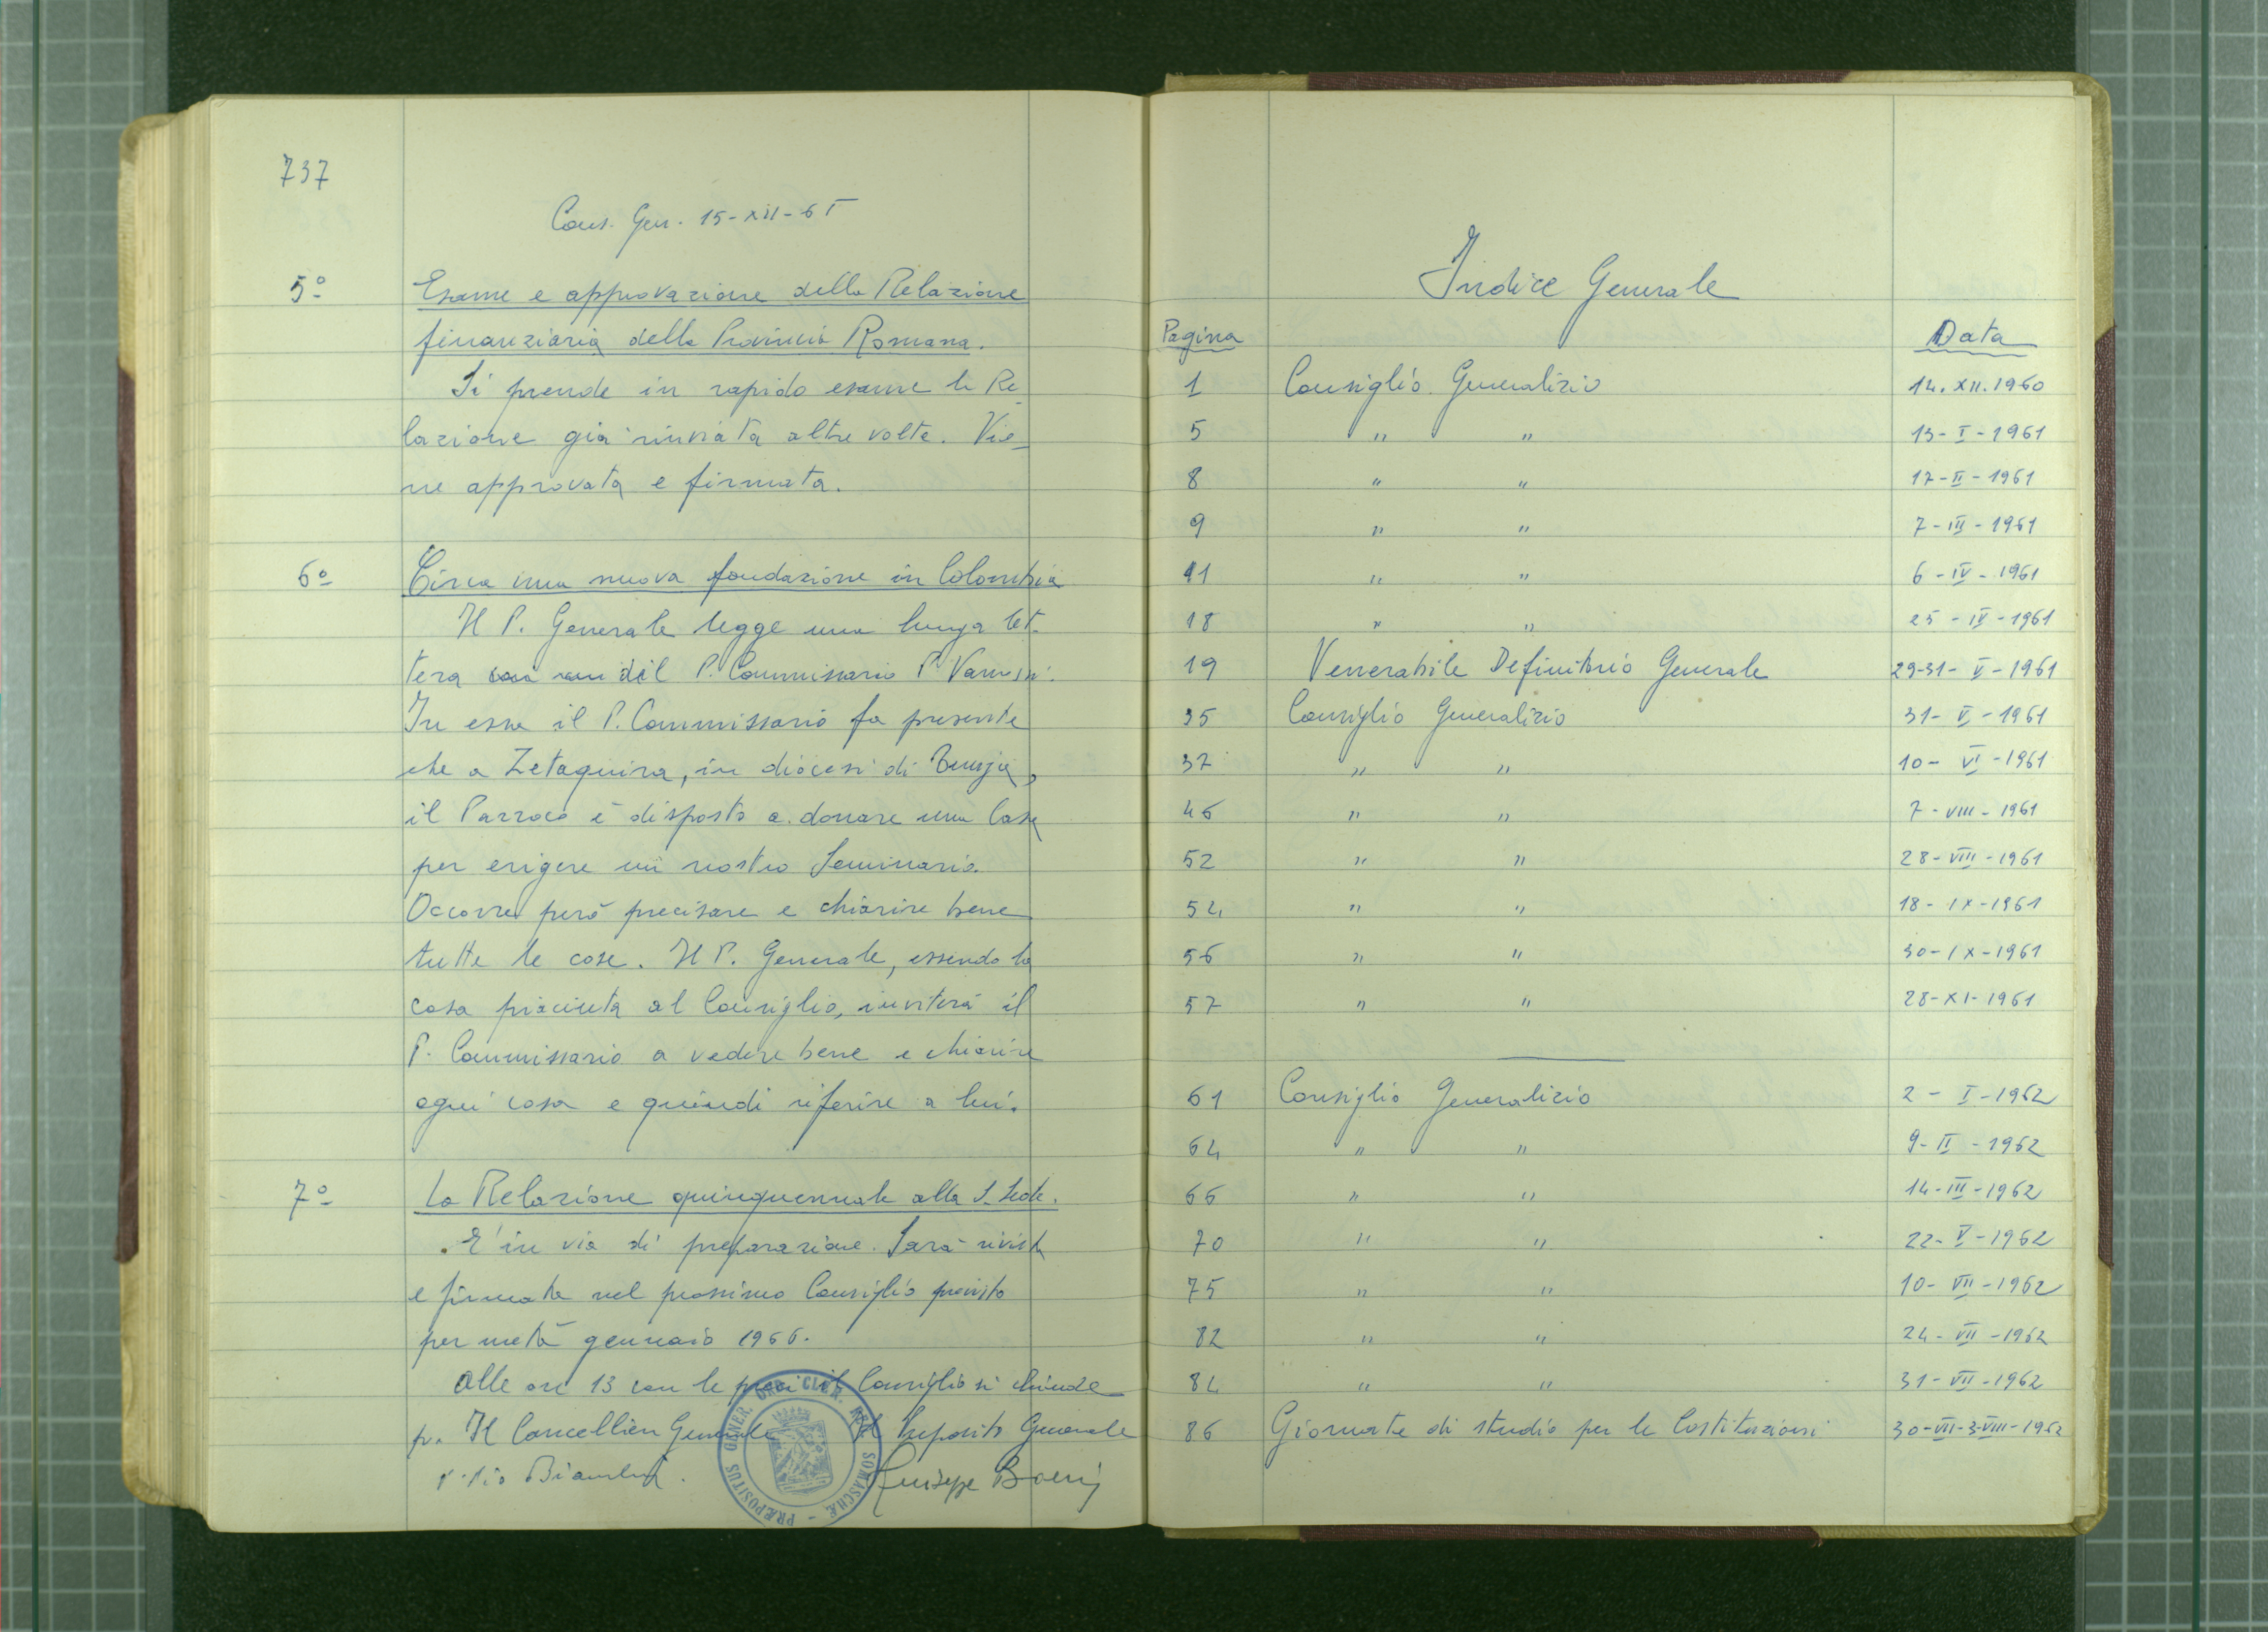 737
Cons. Gen. 15-XII-65
5º Esame e approvazione della Relazione
finanziaria della Provincia Romana.
Si prende in rapido esame la Re
lazione già rinviata altre volte. Vie_
ne approvata e firmata.
6º Circa una nuova fondazione in Colombia
Il P. Generale legge una lunga let.
tera del P. Commissario P.
In essa il P. Commissario fa presente
che a Zetaquira, in diocesi di Tunja,
il Parroco è disposto a donare una Casa
per erigere un nostro Seminario.
Occorre però precisare e chiarire bene
tutte le cose. Il P. Generale, essendo la
cosa piaciuta al Consiglio, inviterà il
P. Commissario a vedere bene e chiarire
ogni cosa e quindi riferire a lui.
7º La Relazione quinquennale alla S. Sede.
E' in via di preparazione. Sarà rivista
e firmata nel prossimo Consiglio previsto
per metà gennaio 1966.
Alle ore 13 con le preci il Consiglio si chiude
p. Il Cancelliere Generale Il Preposito Generale
p. Pio Bianchi. Giuseppe Boeris
PRÆPOSITUS GENER. ORD. CLER. REG. SOMASCHÆ
Indice Generale
Pagina Data
1 Consiglio Generalizio 14.XII.1960
5 " " 13-I-1961
8 " " 17-II-1961
9 " " 7-III-1961
11 " " 6-IV-1961
18 " " 25-IV-1961
19 Venerabile Definitorio Generale 29-31-V-1961
35 Consiglio Generalizio 31-V-1961
37 " " 10-VI-1961
46 " " 7-VIII-1961
52 " " 28-VIII-1961
54 " " 18-IX-1961
56 " " 30-IX-1961
57 " " 28-XI-1961
61 Consiglio Generalizio 2-I-1962
64 " " 9-II-1962
66 " " 14-III-1962
70 " " 22-V-1962
75 " " 10-VII-1962
82 " " 24-VII-1962
84 " " 31-VII-1962
86 Giornate di studio per le Costituzioni 30-VII-3-VIII-1962